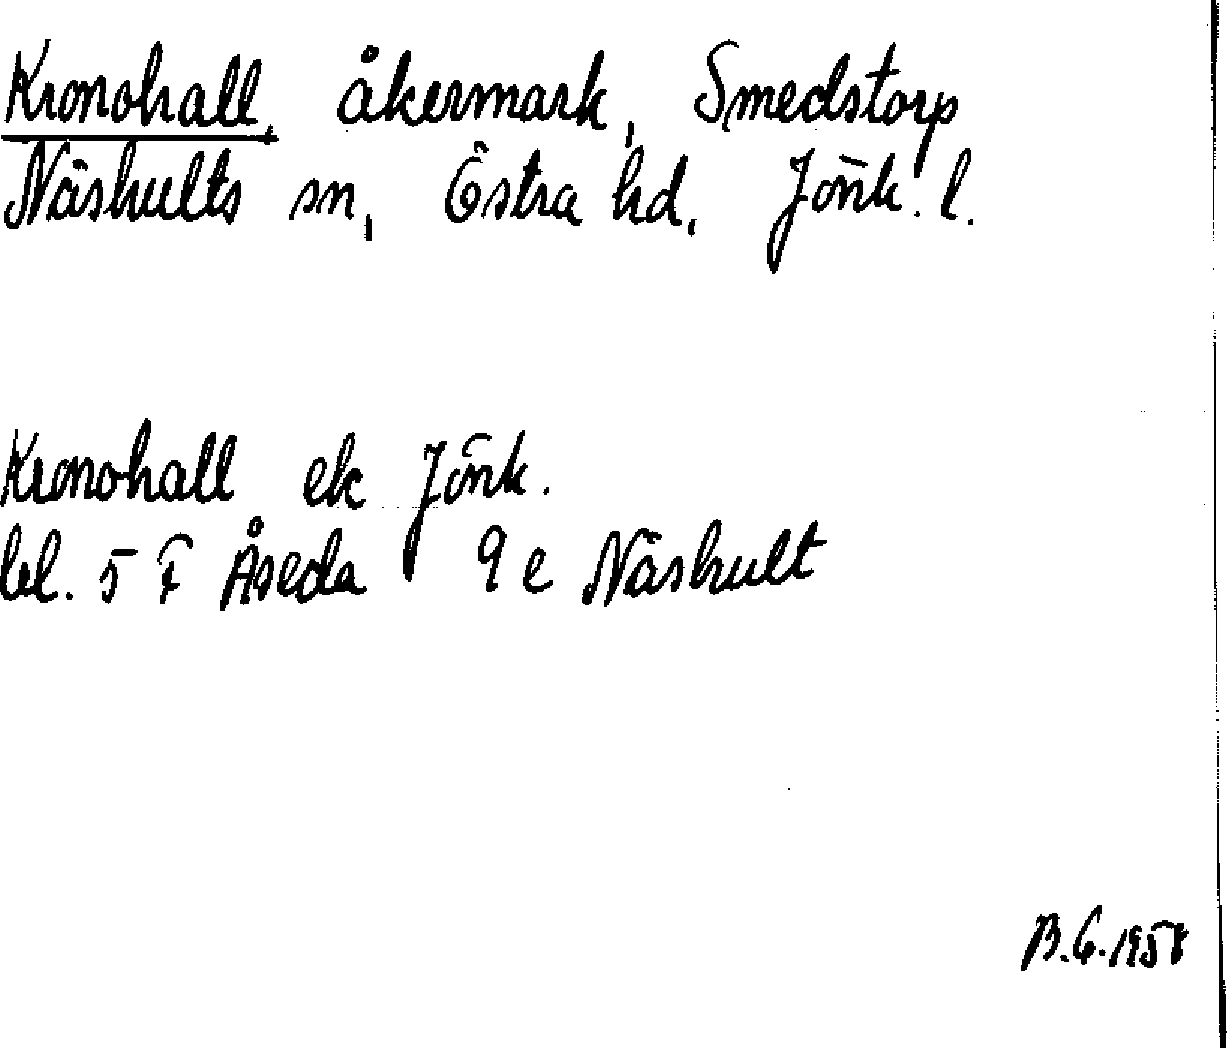 Kronohall, åkermark, Smedstorp
Näshults sn, Östra hd, Jönk. l.
Kronohall ek Jönk.
bl. 5 F Åseda 9 e Näshult
B.G. 1958